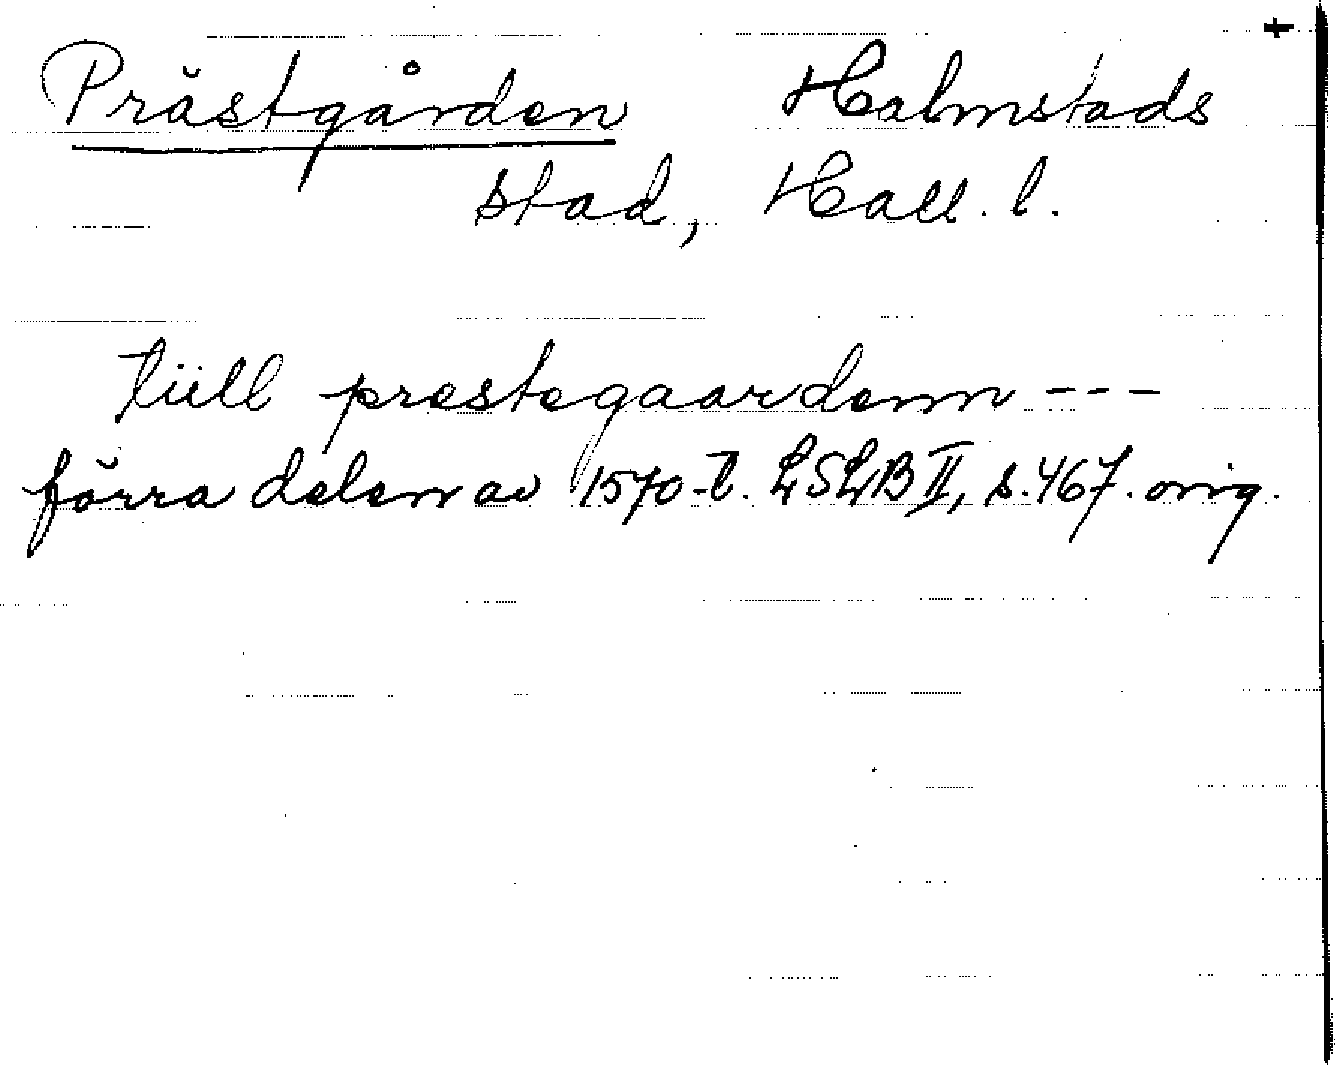 +
Prästgården Halmstads
stad, Hall. l.
tiill prestegaardenn ---
förra delen av 1570-t. LSLB II, s. 467. orig.